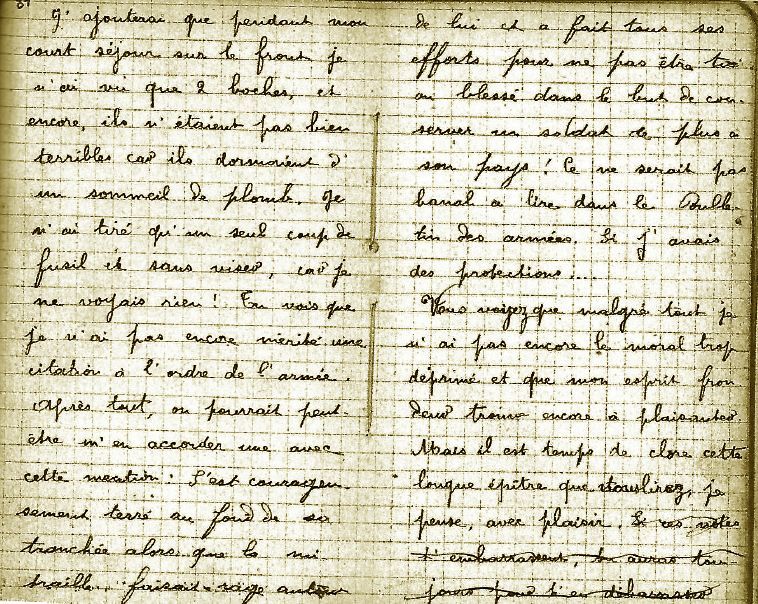 J'ajouterai que pendant mon
court séjour sur le front je
n'ai vu que 2 boches, et
encore, ils n'étaient pas bien
terribles car ils dormaient d'
un sommeil de plomb. Je
n'ai tiré qu'un seul coup de
fusil et sans viser, car je
ne voyais rien ! Tu vois que
je n'ai pas encore mérité une
citation à l'ordre de l'armée.
Après tout, on pourrait peut-
être m'en accorder une avec
cette mention : S'est courageu-
sement terré au fond de sa
tranchée alors que la mi-
traille faisait rage autour
de lui et a fait tous ses
efforts pour ne pas être tué
ou blessé dans le but de con-
server un soldat de plus à
son pays ! Ce ne serait pas
banal à lire dans le Bulle-
tin des armées. Si j'avais
des protections...
Vous voyez que malgré tout je
n'ai pas encore le moral trop
déprimé et que mon esprit fron
deur trouve encore à plaisanter.
Mais il est temps de clore cette
longue épître que vous lirez, je
pense, avec plaisir. Si ces notes
t'embarrassent, tu auras tou-
jours pour t'en débarrasser